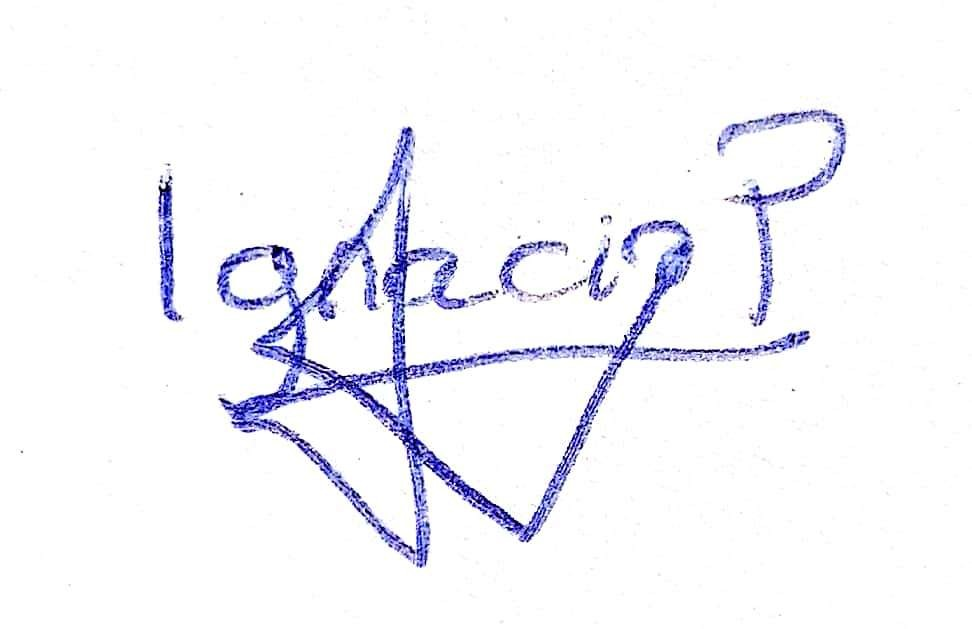 Ignacio P